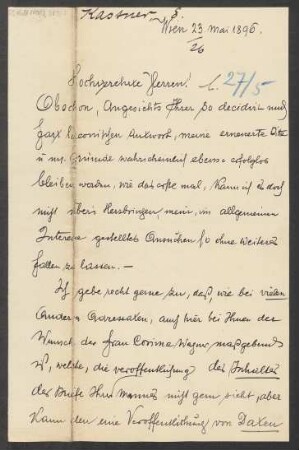 Kastner
Wien 23. Mai 1896.
26
Hochgeehrte Herren! b. 27/5
Obschon, Angesichts Ihrer so decidirt und
fast laconischen Antwort, meine erneuerte Bitte
u. Gründe wahrscheinlich ebenso erfolglos
bleiben werden, wie das erste mal, kann ich doch
nicht übers Herz bringen mein, im allgemeinen
Interesse gestelltes Ansuchen so ohne weiteres
fallen zu lassen. —
Ich gebe recht gerne zu, daß, wie bei vielen
anderen Adressaten, auch hier bei Ihnen der
Wunsch der Frau Cosima Wagner maßgebend
ist, welche, die veröffentlichung des Inhaltes
der Briefe Ihres Mannes nicht gern sieht, aber
kann denn eine Veröffentlichung von Daten